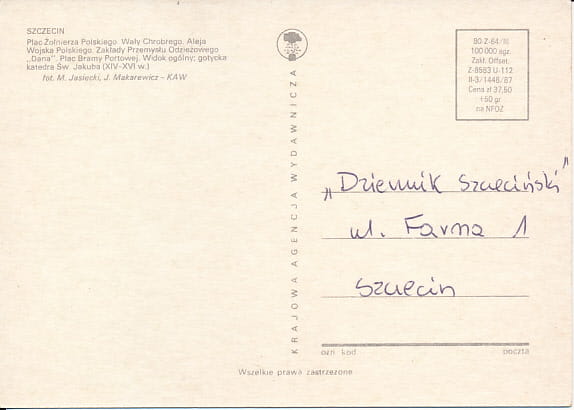 SZCZECIN
Plac Żołnierza Polskiego. Wały Chrobrego. Aleja
Wojska Polskiego. Zakłady Przemysłu Odzieżowego
„Dana". Plac Bramy Portowej. Widok ogólny; gotycka
katedra Św. Jakuba (XIV-XVI w.)
fot. M. Jasiecki, J. Makarewicz - KAW
KRAJOWA AGENCJA WYDAWNICZA
80-Z-64/III
100 000 egz.
Zakł. Offset.
Z-8583 U-112
II-3/1448/87
Cena zł 37,50
+50 gr
na NFOZ
„Dziennik Szczeciński"
ul. Farna 1
Szczecin
ozn kod
poczta
Wszelkie prawa zastrzeżone